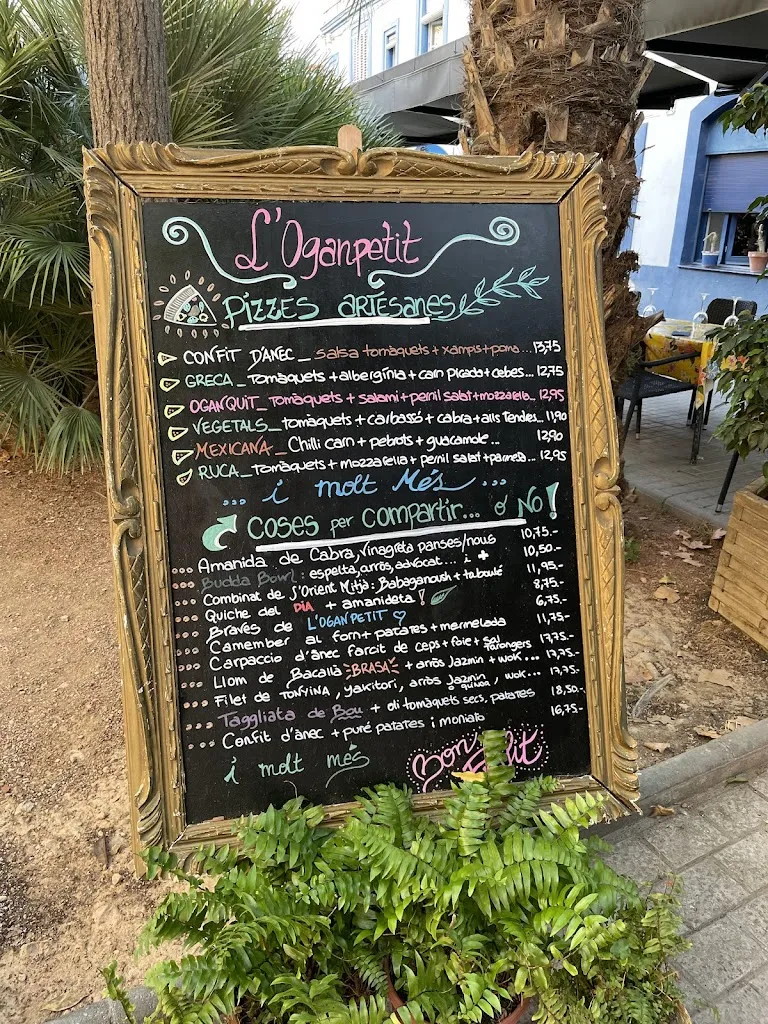 L'Oganpetit
PIZZES ARTESANES
CONFIT D'ANEC_ salsa tomàquets + xampis + poma ... 13,75
GRECA_ Tomàquets + albergínia + carn picada + cebes... 12,75
OGANQUIT_ Tomàquets + salami + pernil salat + mozzarella... 12,95
VEGETALS_ tomàquets + carbassó + cabra + alls Tendres... 11,90
MEXICANA_ Chilli carn + pebrots + guacamole... 12,90
RUCA_ Tomàquets + mozzarella + pernil salat + parmesà... 12,95
... i molt Més ...
COSES per compartir... ó NO!
Amanida de Cabra, vinagreta panses/nous 10,75.-
Budda Bowl: espelta, arròs, advocat... i + 10,50.-
Combinat de s'Orient Mitjà: Babaganoush + taboulé 11,95.-
Quiche del DIA + amanideta! 8,75.-
Braves de L'OGANPETIT 6,75.-
Camember al forn + patates + mermelada 11,75.-
Carpaccio d'ànec farcit de ceps + foie + sal
Llom de Bacallà BRASA + arròs Jazmin + wok... 17,75.-
Filet de TONYINA, yakitori, arròs Jazmin o quinoa, wok... 17,75.-
Taggliata de Bou + oli tomàquets secs, patates 18,50.-
Confit d'ànec + puré patates i moniato 16,75.-
i molt més
Bon